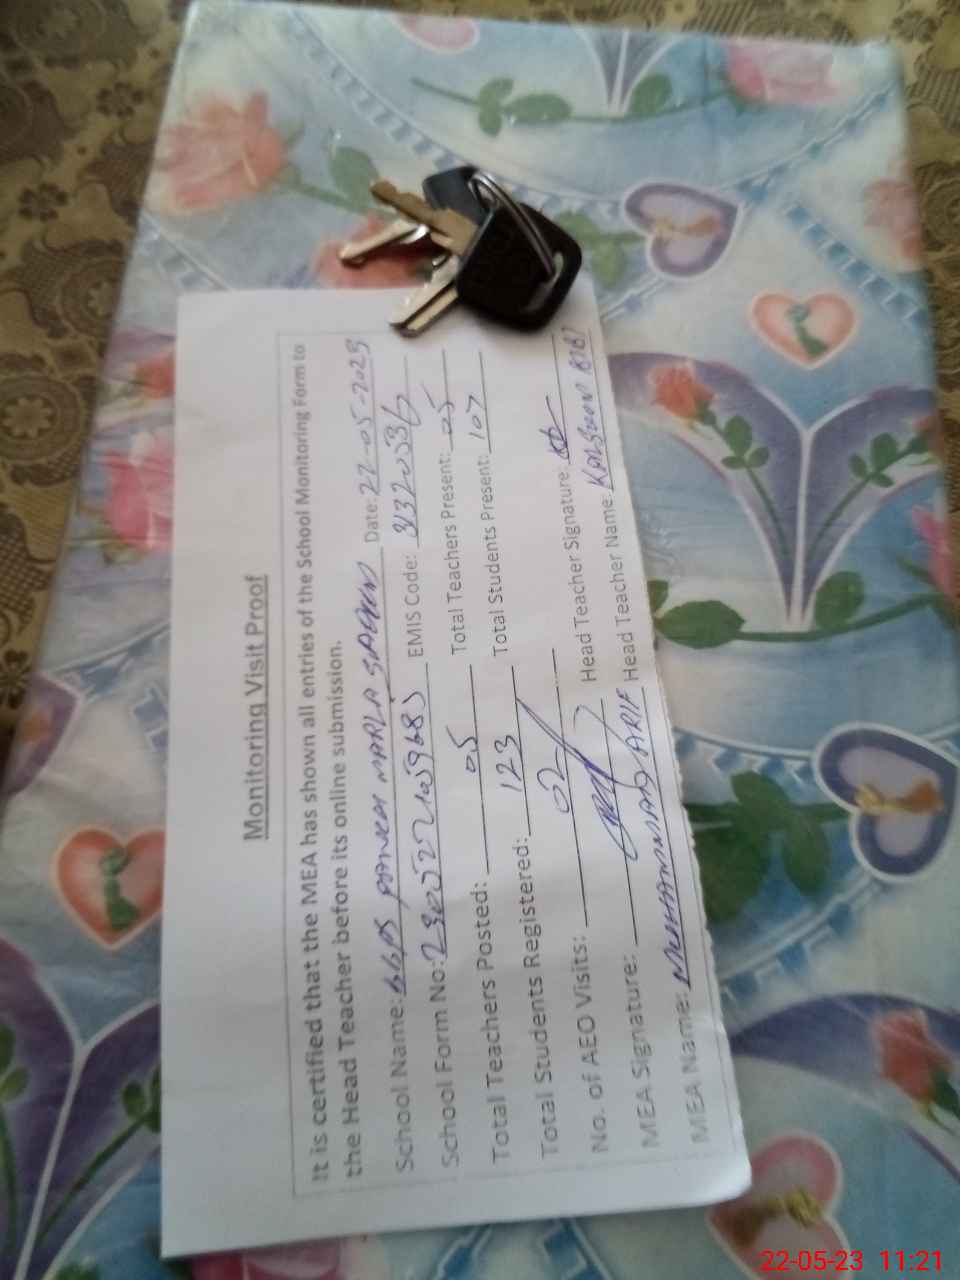 Monitoring Visit Proof
It is certified that the MEA has shown all entries of the School Monitoring Form to
the Head Teacher before its online submission.
School Name: GGPS MARLA Date: 22-05-2023
School Form No: EMIS Code: 31320536
Total Teachers Posted: 05 Total Teachers Present: 05
Total Students Registered: 123 Total Students Present: 107
No. of AEO Visits: 02
MEA Signature: Head Teacher Signature:
MEA Name: MUHAMMAD ARIF Head Teacher Name: KALSOOM BIBI
22-05-23 11:21